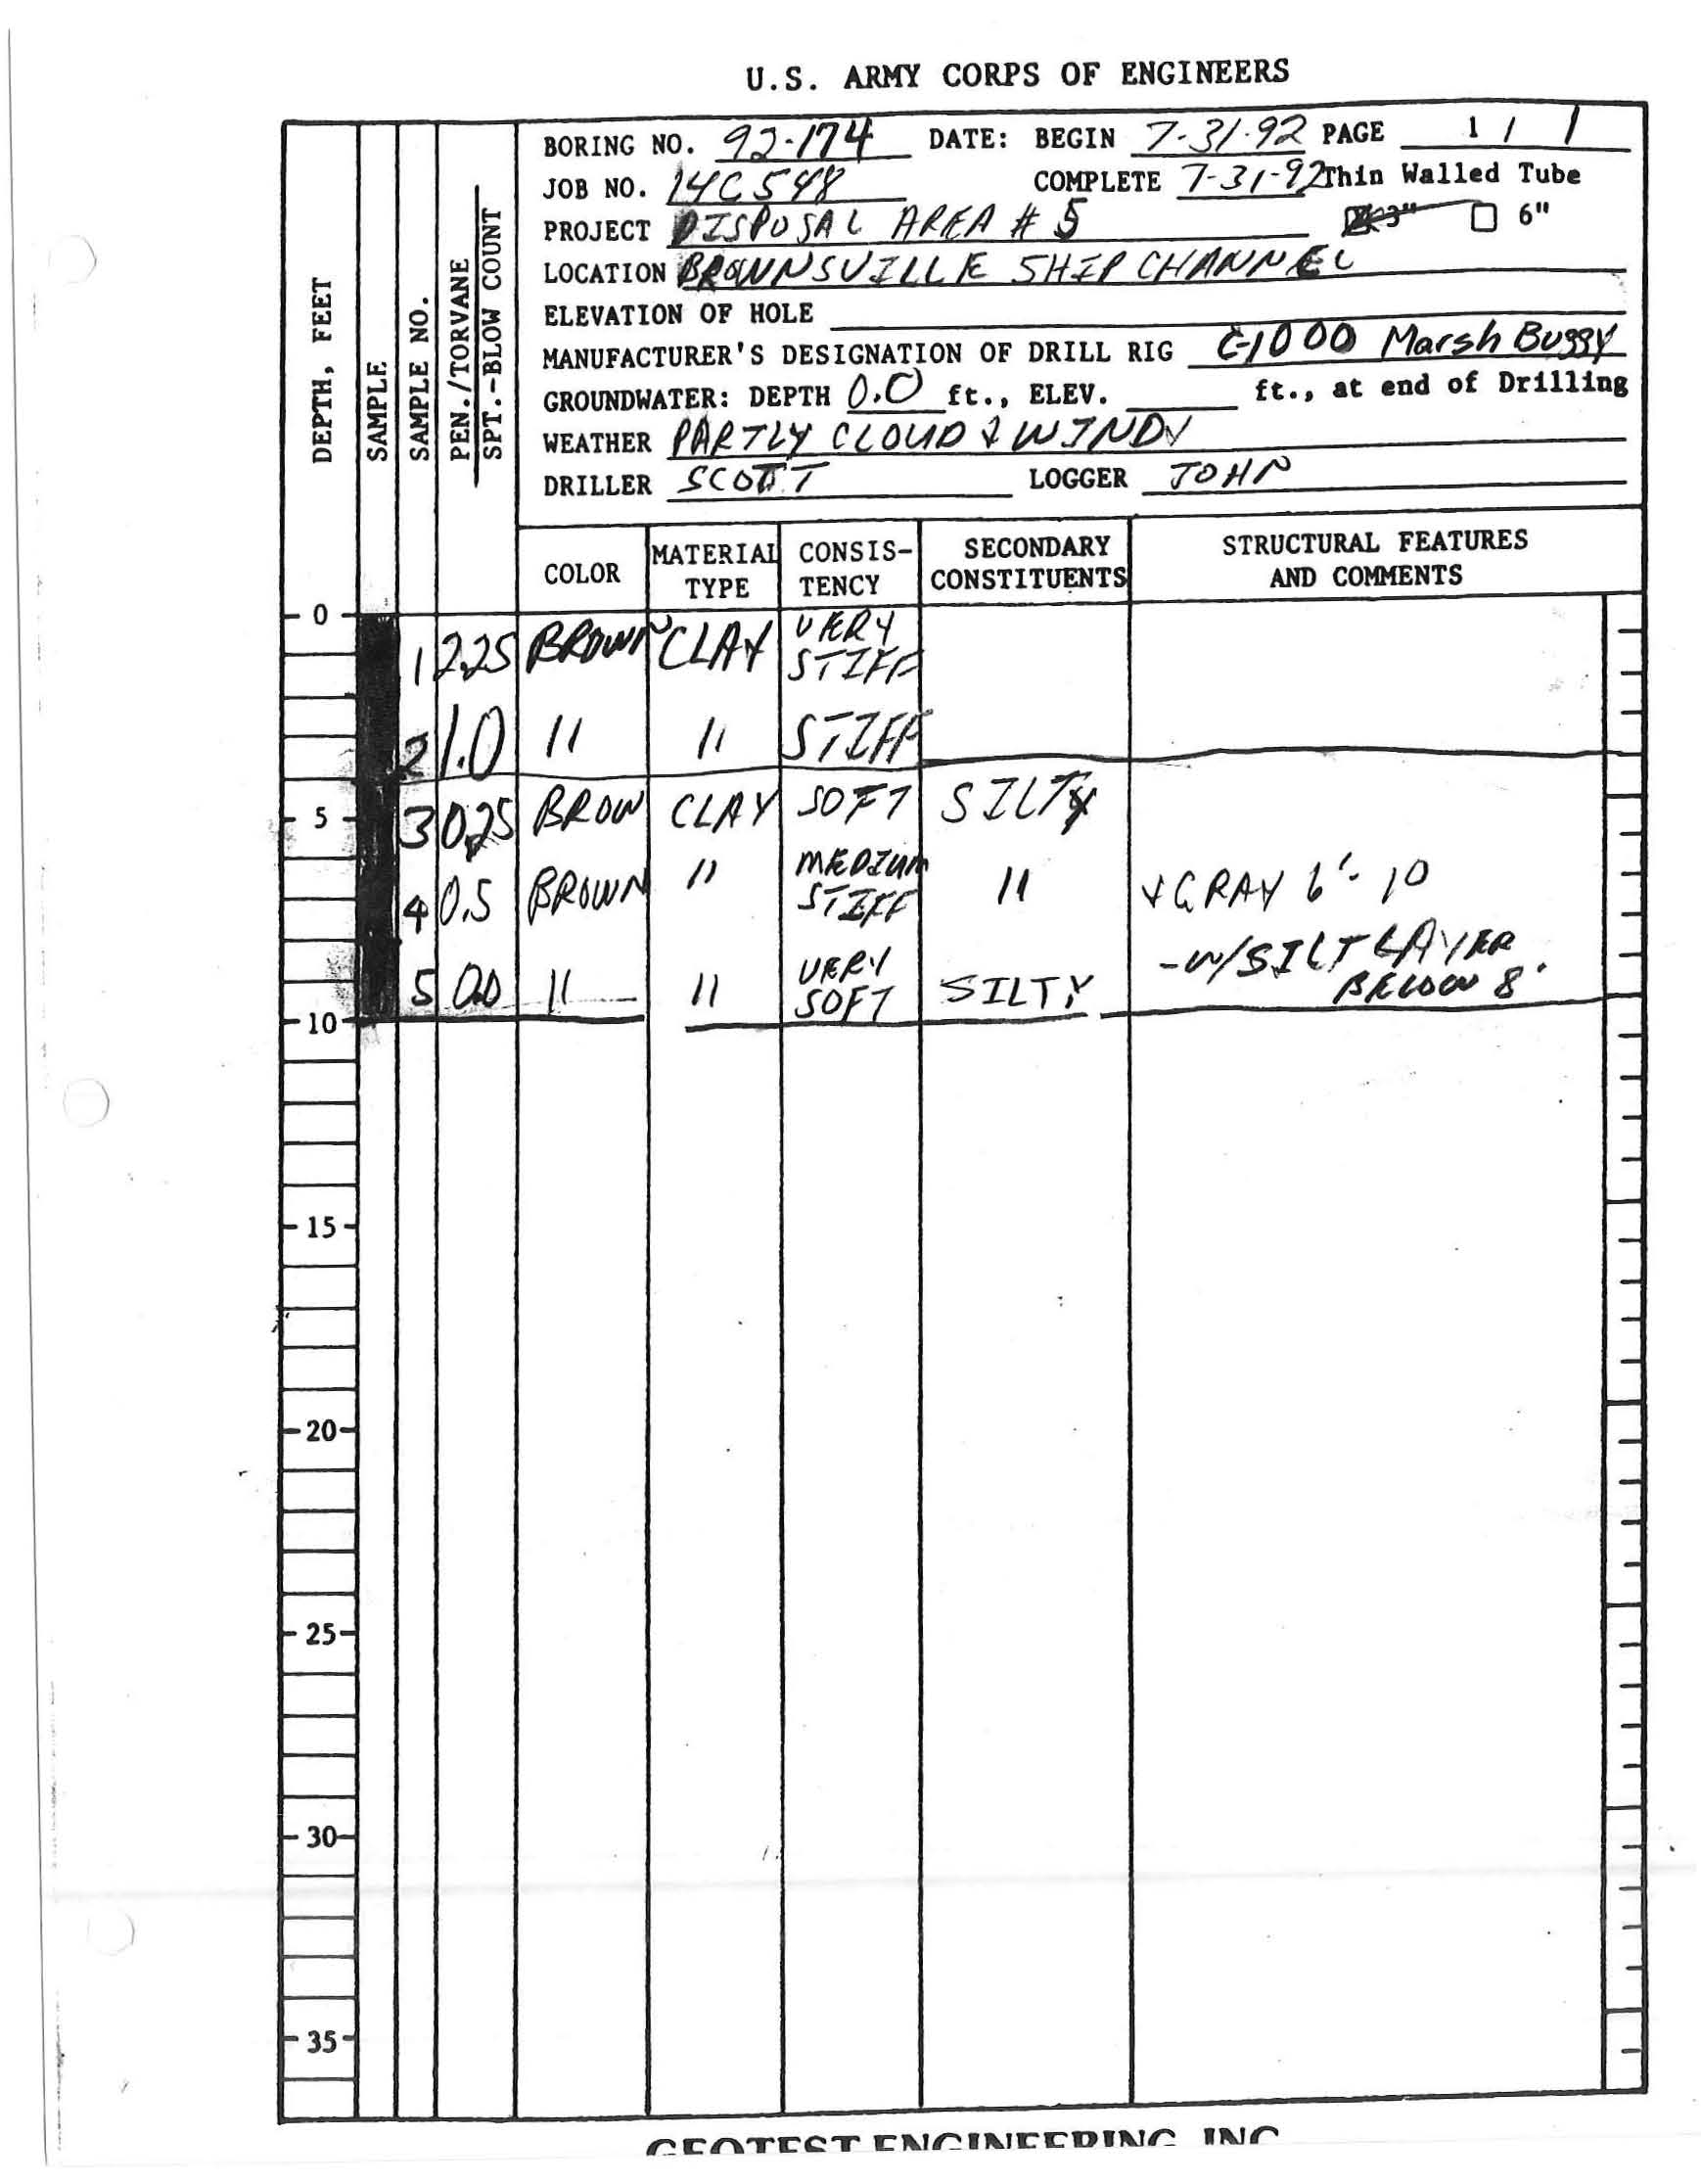 U.S. ARMY CORPS OF ENGINEERS
BORING NO. 92-174 DATE: BEGIN 7-31-92 PAGE 1 / 1
JOB NO. 14C548 COMPLETE 7-31-92 Thin Walled Tube
PROJECT DISPOSAL AREA # 5 3" 6"
LOCATION BROWNSVILLE SHIP CHANNEL
ELEVATION OF HOLE
MANUFACTURER'S DESIGNATION OF DRILL RIG C-1000 Marsh Buggy
GROUNDWATER: DEPTH 0.0 ft., ELEV. ft., at end of Drilling
WEATHER PARTLY CLOUD & WINDY
DRILLER SCOTT LOGGER JOHN
DEPTH, FEET
SAMPLE
SAMPLE NO.
PEN./TORVANE
SPT.-BLOW COUNT
COLOR MATERIAL TYPE CONSIS-TENCY SECONDARY CONSTITUENTS STRUCTURAL FEATURES AND COMMENTS
0
1 2.25 BROWN CLAY VERY STIFF
2 1.0 " " STIFF
5
3 0.25 BROW CLAY SOFT SILTY
4 0.5 BROWN " MEDIUM STIFF " & GRAY 6'- 10
-W/SILT LAYER
BELOW 8'
5 0.0 " " VERY SOFT SILTY
10
15
20
25
30
35
GEOTEST ENGINEERING, INC.